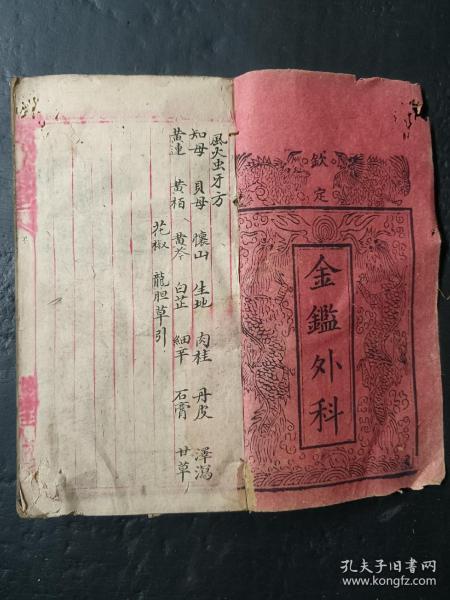 欽定
金鑑外科
風火虫牙方
知母 貝母 懷山 生地 肉桂 丹皮 澤瀉
黃連 黃栢 黃芩 白芷 細辛 石膏 甘草
花椒 龍胆草引
孔夫子旧书网
www.kongfz.com